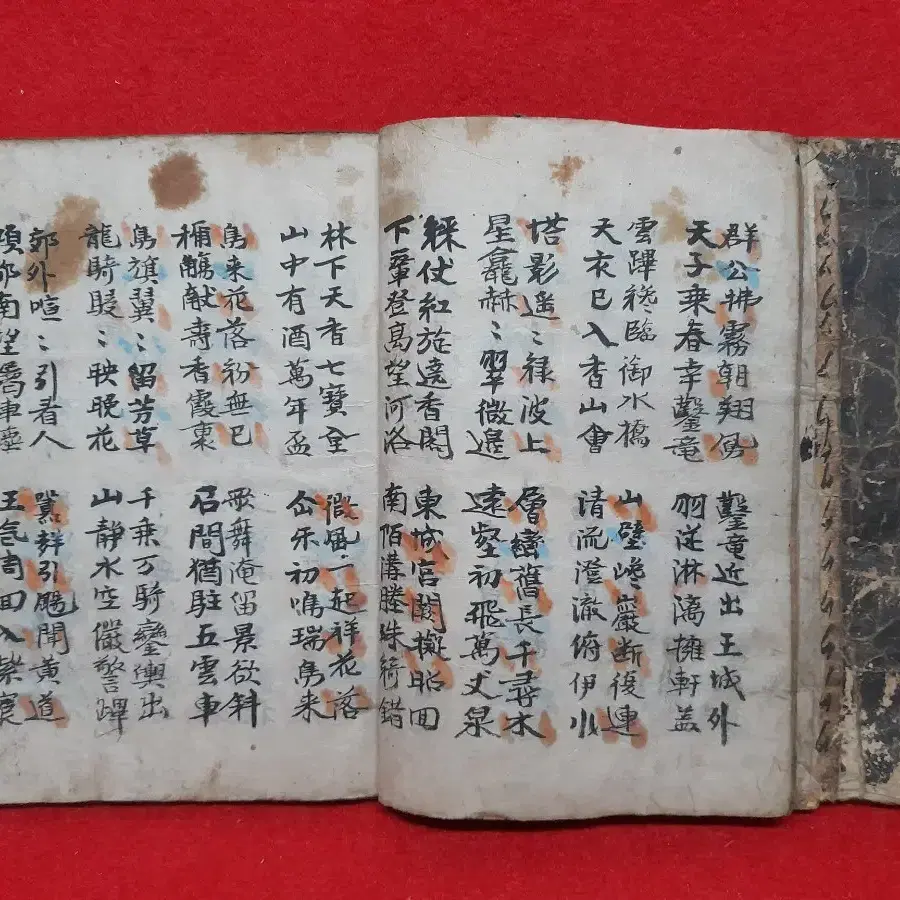 群公拂霧朝翔鳳
天子乘春幸鑿竜
鑿竜近出王城外
羽從淋漓擁軒盖
雲蹕纔臨御水橋
天衣已入香山會
山壁巉巖断復連
清流澄澈俯伊川
塔影遥〻禄波上
星龕赫〻翠微邉
層巒舊長千尋木
遠壑初飛萬丈泉
綵仗紅旋遶香閣
下輦登高望河洛
東城宮闕擬昭回
南陌溝塍殊綺錯
林下天香七寶坮
山中有酒萬年盃
微風一起祥花落
仙乐初鳴瑞鳥来
鳥来花落紛無已
稱觴献壽香霞裏
歌舞淹留景欲斜
石間猶駐五雲車
鳥旗翼〻留芳草
龍騎駸〻映晚花
千乘万騎鑾輿出
山靜水空儼警蹕
郊外喧〻引看人
傾都南望屬車塵
引颺聞黄道
王气周回入紫宸